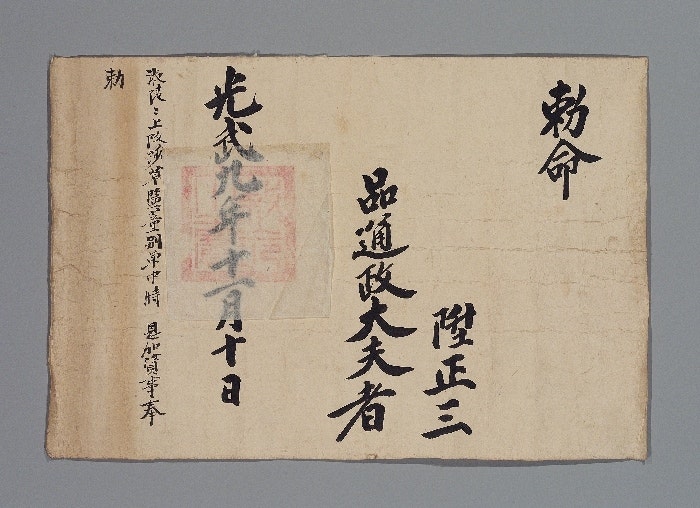 勅命
陞正三
品通政大夫者
光武九年十一月十日
上
別單中
恩加資事奉
勅